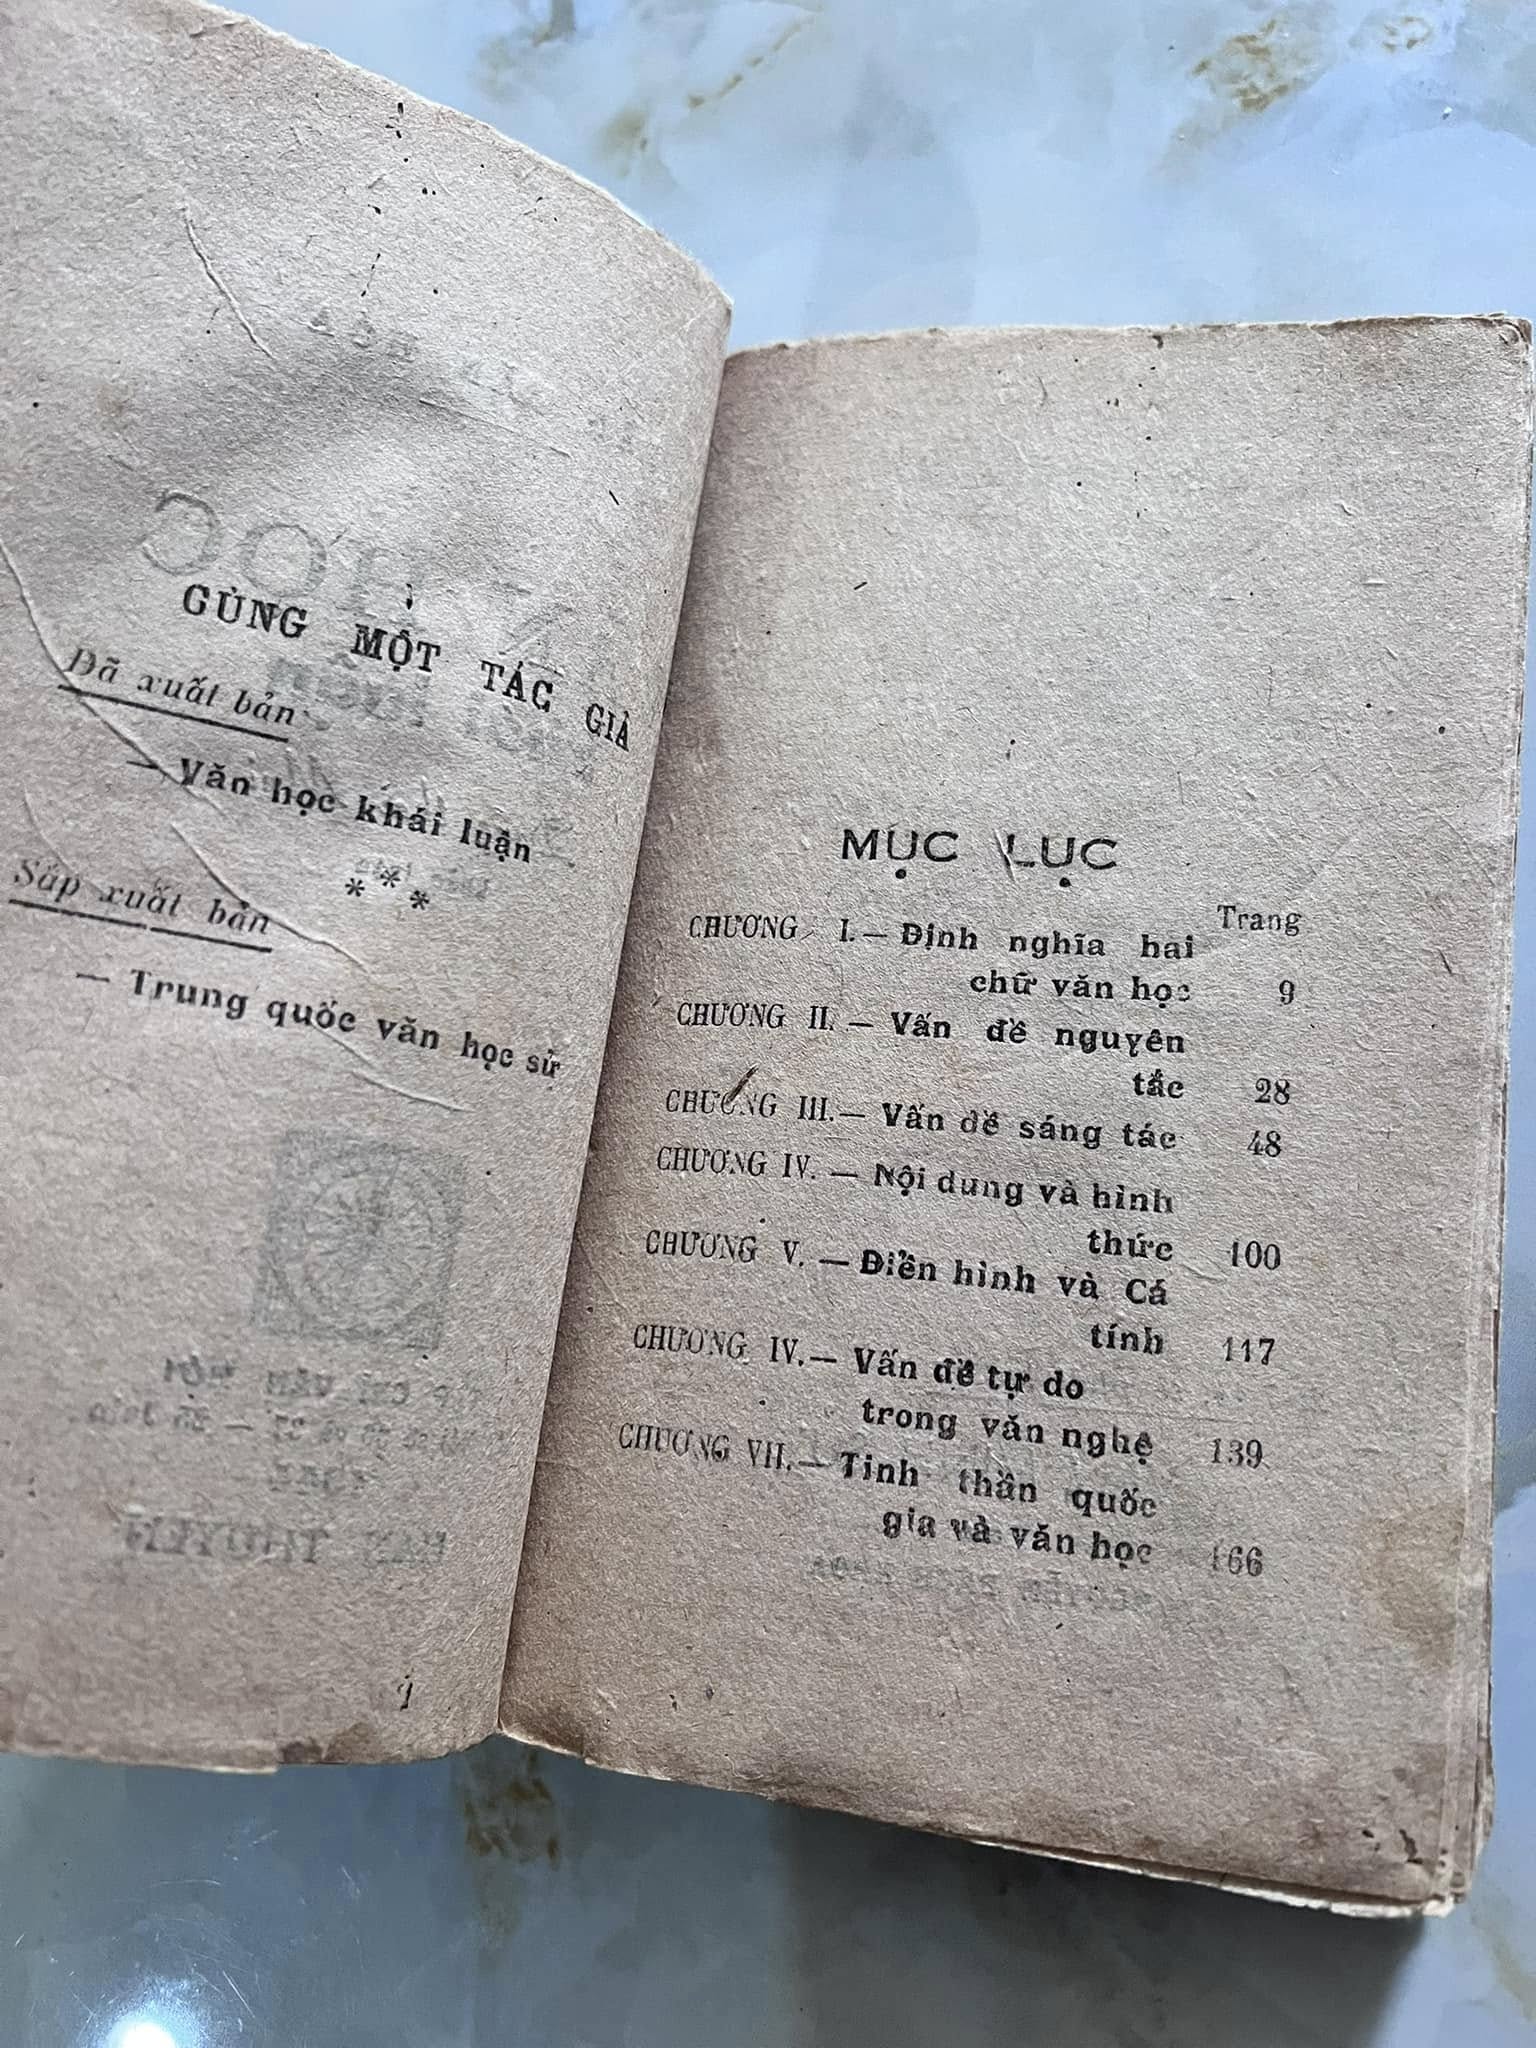 CÙNG MỘT TÁC GIẢ
Đã xuất bản
— Văn học khái luận
* * *
Sắp xuất bản
— Trung quốc văn học sử
MỤC LỤC
Trang
CHƯƠNG I.— Định nghĩa hai
chữ văn học 9
CHƯƠNG II. — Vấn đề nguyên
tắc 28
CHƯƠNG III.— Vấn đề sáng tác 48
CHƯƠNG IV. — Nội dung và hình
thức 100
CHƯƠNG V. — Điển hình và Cá
tính 117
CHƯƠNG IV.— Vấn đề tự do
trong văn nghệ 139
CHƯƠNG VII.— Tinh thần quốc
gia và văn học 166